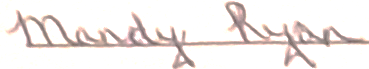 Mandy Ryan